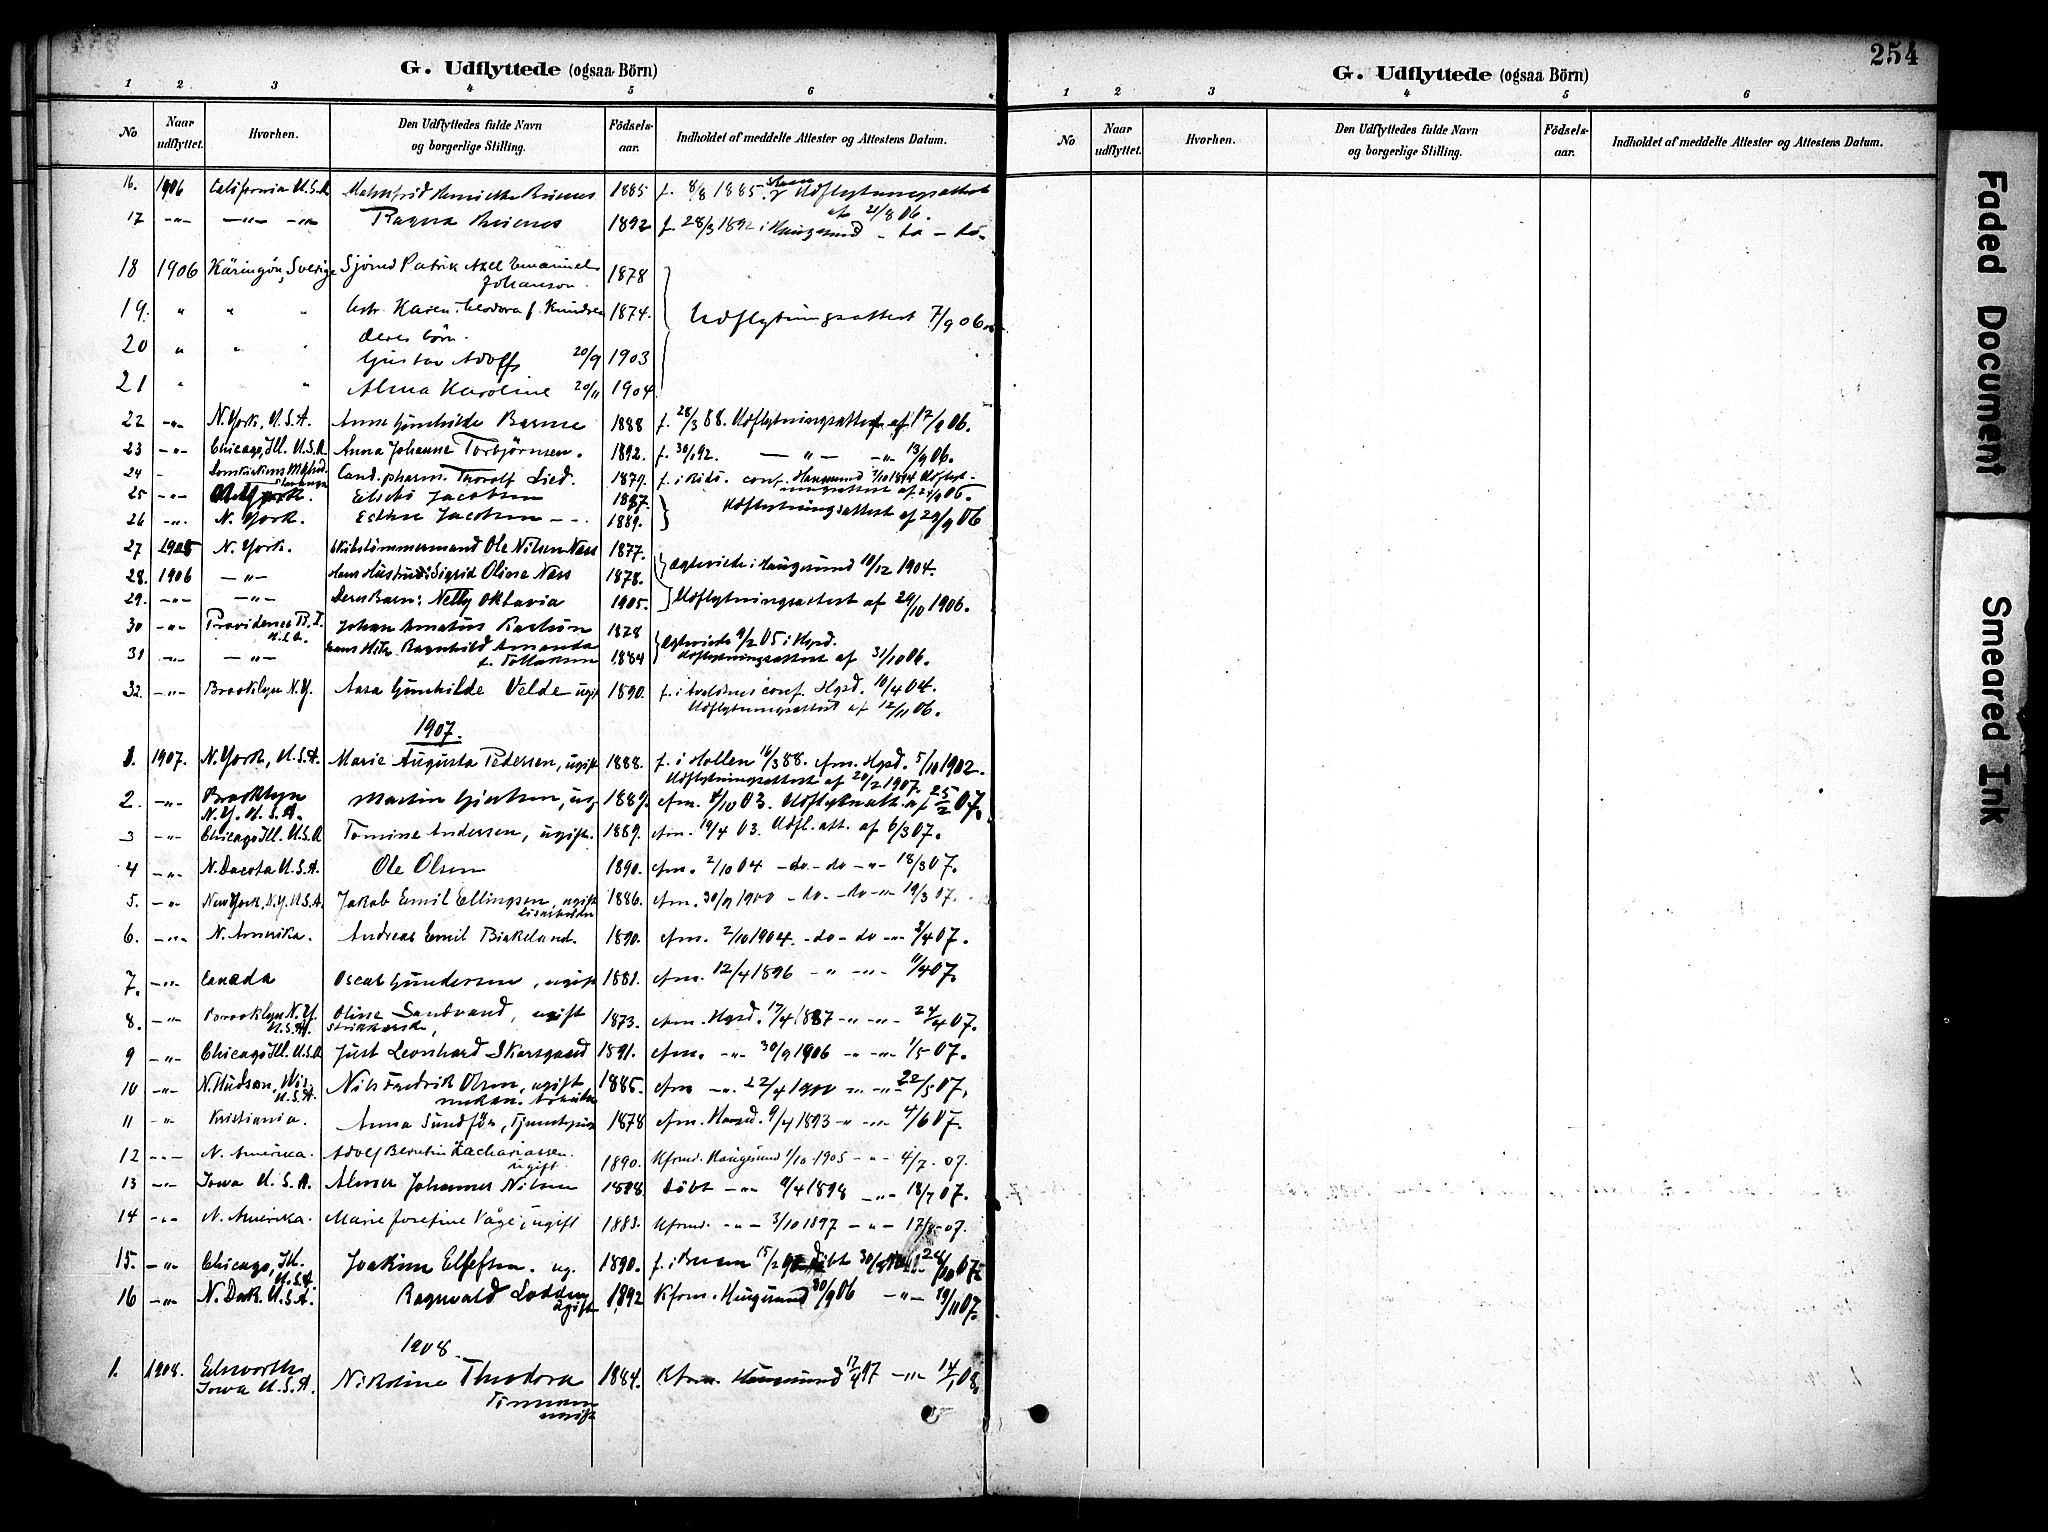 254
G. Udflyttede (ogsaa Börn)
1 2 3 4 5 6
No
Naar udflyttet.
Hvorhen.
Den Udflyttedes fulde Navn og borgerlige Stilling.
Födsels-aar.
Indholdet af meddelte Attester og Attestens Datum.
16. 1906 California U.S.A. 1885 f. 8/8 1885. Udflytningsattest
af 21/8 06.
17 -"- -"- -"- Ragna 1892 f. 28/3 1892 i Haugesund - do - do -
18 1906 Käringön, Sverige Sjömd Patrik Axel Emanuel
Johanson. 1878
19. " " " Karen Teodora f. Knudsen 1874. Udflytningsattest 7/9 06.
deres börn.
20 " " " Gustav Adolf 20/9 1903
21 " " Alma Karoline 20/11 1904
22 -"- N. York, U.S.A. Anne Gunhilde 1888 f. 28/3 88. Udflytningsattest af 17/9 06.
23 -"- Chicago, Ill. U.S.A. Anna Johanne Torbjörnsen. 1892. f. 30/1 92. -"- -"- 13/9 06.
24 - Cand. pharm. Thorolf Lied. 1879. conf. Haugesund
25 -"- Jacobsen 1887.
26 -"- N. York. Esther Jacobsen 1889. Udflytningsattest af 29/9 06
27 1905 N. York. Skibstömmermand Ole Nilsen Næss 1877.
28. 1906 -"- Hans Hustru: Sigrid Oline Næss 1878. Ægteviede i Haugesund 10/12 1904.
29. -"- -"- Deres Barn: Netty Oktavia 1905. Udflytningsattest af 29/10 1906.
30 -"- Providence R.I. Johan Amatus 1878
31 -"- -"- Ragnhild Amanda 1884 Ægteviede 9/2 05 i Hgsd.
Udflytningsattest af 31/10 06.
32. -"- Brooklyn N.Y. Aasa Gunhilde Velde ugift 1890. f. i Avaldsnes conf. Hgsd. 10/4 04.
Udflytningsattest af 12/11 06.
1907.
1. 1907. N. York, U.S.A. Marie Augusta Pedersen, ugift 1888. f. i Hollen 16/3 88. Hgsd. 5/10 1902.
Udflytningsattest af 20/2 1907.
2. -"- Brooklyn
N.Y. U.S.A. Martin Gjertsen, ug. 1889. cfm. 4/10 03. Udflytn.att. af 25/2 07.
3 -"- Chicago Ill. U.S.A. Tomine Andersen, ugift. 1889. cfm. 19/4 03. Udfl.att. af 6/3 07.
4 -"- N. Dacota U.S.A. Ole Olsen 1890. cfm. 2/10 04 - do - do - " - 18/3 07.
5. -"- New York, N.Y. U.S.A. Jakob Emil Ellingsen, ugift 1886. cfm. 30/9 1900 - do. - do - " - 19/3 07.
6. -"- N. Amerika. Andreas Emil Birkeland. 1890. cfm. 2/10 1904. - do - do - " - 3/4 07.
7. -"- Canada Oscar Gundersen, ugift 1881. cfm. 12/4 1896 - " - -"- 11/4 07.
8. -"- Brooklyn N.Y.
U.S.A. Oline Sandvand, ugift
strikkerske, 1873. cfm. Hgsd. 17/4 1887 -"- -"- 24/4 07.
9 -"- Chicago Ill. U.S.A. Just Leonhard Skarsgaard 1891. cfm. -"- 30/9 1906 -"- -"- 1/5 07.
10 -"- N. Hudson, Wis.
U.S.A. Nils Fredrik Olsen, ugift
mekan. Arbeider 1885. cfm -"- 22/4 1900 -"- -"- 22/5 07.
11 -"- Kristiania. Anna Sundför, Tjenestepige 1878 cfm. Haugsd. 9/4 1893 -"- -"- 4/6 07.
12 -"- N. Amerika. Adolf Berntin Zachariassen.
ugift. 1890. Kfrmd. Haugesund 1/10 1905 -"- 4/7. 07.
13 -"- Iowa U.S.A. Johannes Nilsen 1898. Döbt -"- 9/4 1898 -"- 18/7 07.
14 -"- N. Amerika. Marie Josefine Våge, ugift 1883. Kfrmd. -"- 3/10 1897 -"- 17/8 07.
15. -"- Chicago, Ill.
U.S.A. Joakim Ellefsen. ug. 1890. 24/10 07.
16 -"- N. Dak. U.S.A. Ragnvald Lodden
ugift 1892 Kfrm. Haugesund 30/9 06 -"- 19/11 07.
1908.
1. 1908. Ellsworth
Iowa U.S.A. Nikoline Theodora
ugift 1884. Kfrm. Haugesund -"- 14/1 08.
G. Udflyttede (ogsaa Börn)
1 2 3 4 5 6
No
Naar udflyttet.
Hvorhen.
Den Udflyttedes fulde Navn og borgerlige Stilling.
Födsels-aar.
Indholdet af meddelte Attester og Attestens Datum.
Faded Document
Smeared Ink